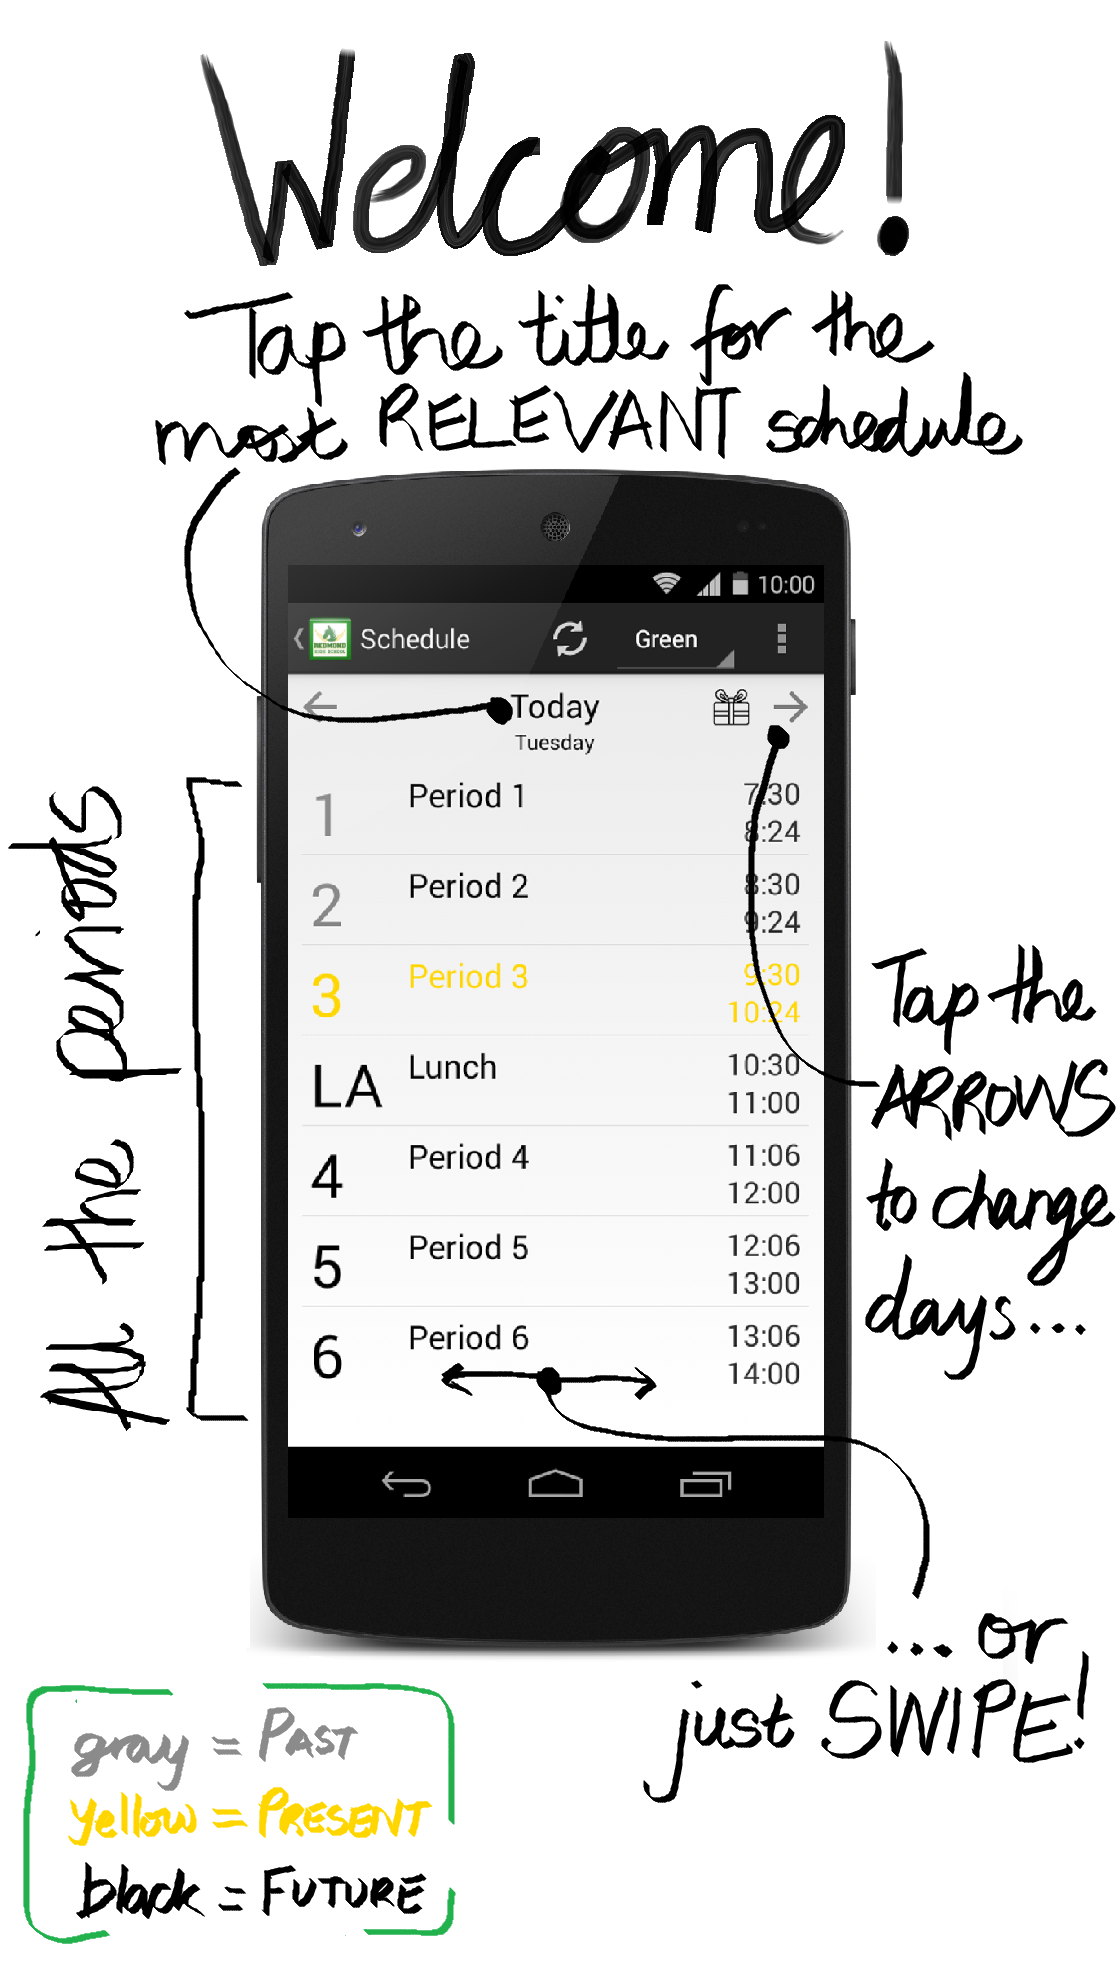 Welcome!
Tap the title for the
most RELEVANT schedule
10:00
REDMOND
HIGH SCHOOL
Schedule
Green
Today
Tuesday
1 Period 1 7:30
8:24
2 Period 2 8:30
9:24
3 Period 3 9:30
10:24
LA Lunch 10:30
11:00
4 Period 4 11:06
12:00
5 Period 5 12:06
13:00
6 Period 6 13:06
14:00
All the periods
Tap the
ARROWS
to change
days...
... or
just SWIPE!
gray = PAST
yellow = PRESENT
black = FUTURE